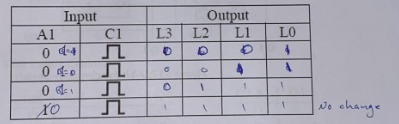 Input Output
A1 C1 L3 L2 L1 L0
0 0 0 0 1
0 0 0 1 1
0 0 1 1 1
X0 1 1 1 1 No change